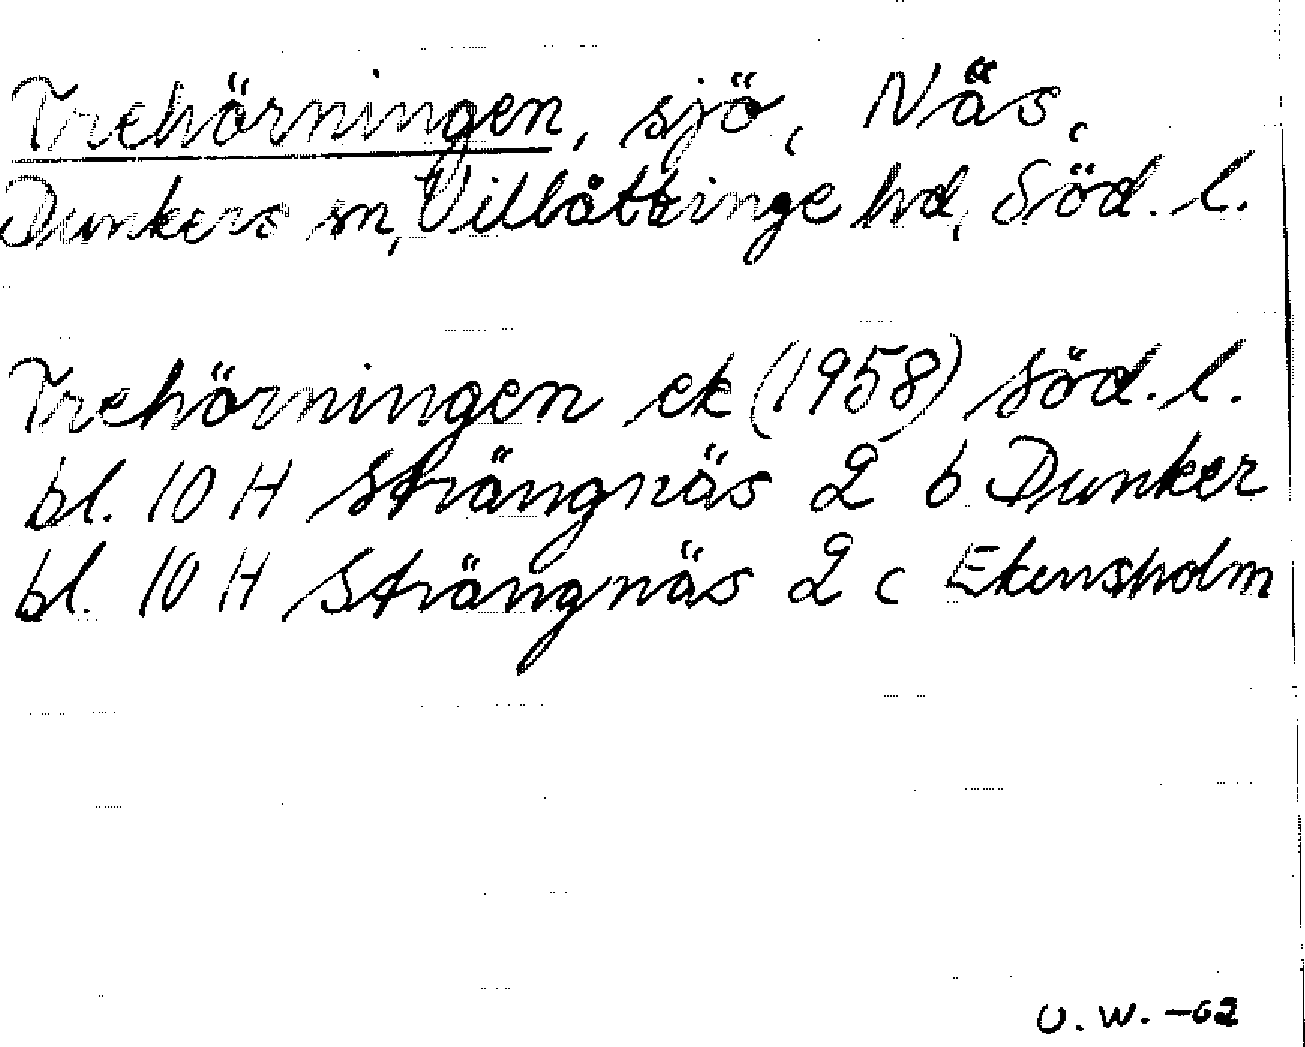 Trehörningen, sjö, Näs,
Dunkers sn, Villåttinge hd, Söd. l.
Trehörningen ek (1958) Söd. l.
bl. 10 H Strängnäs 2 b Dunker
bl. 10 H Strängnäs 2 c Ekensholm
U. W. -62